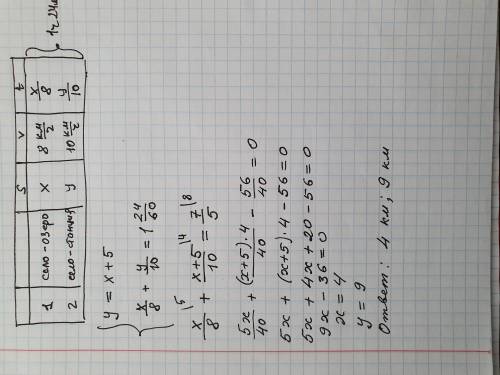 S v t
1 село-озеро x 8 км/ч x/8
2 село-станция y 10 км/ч y/10 } 1ч 24м
{ y = x + 5
x/8 + y/10 = 1 24/60
x/8 |5 + x+5/10 |4 = 7/5 |8
5x/40 + (x+5)·4/40 - 56/40 = 0
5x + (x+5)·4 - 56 = 0
5x + 4x + 20 - 56 = 0
9x - 36 = 0
x = 4
y = 9
Ответ: 4 км; 9 км